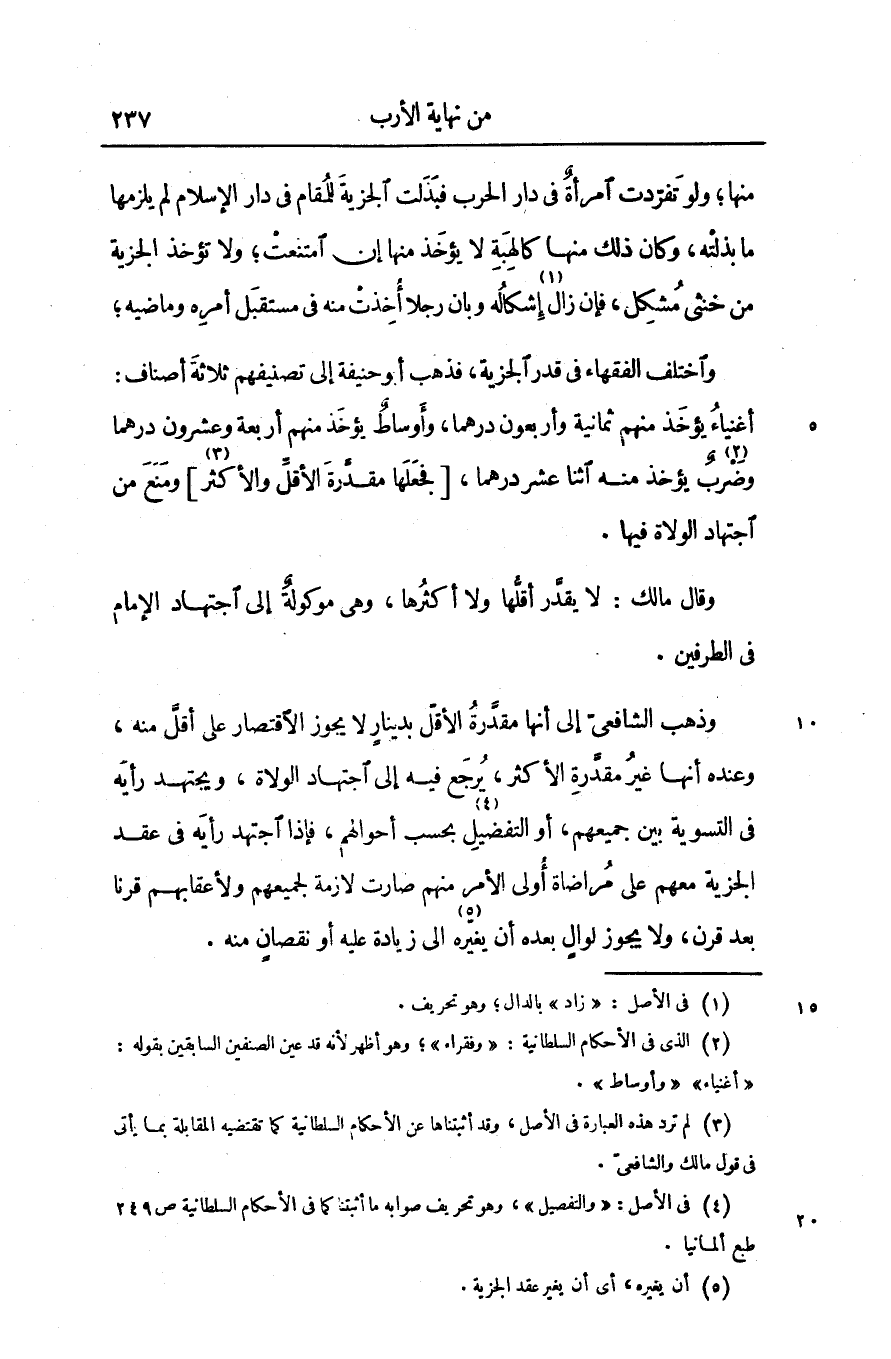 من نهاية الأرب ٢٣٧
منها؛ ولو تفرّدت ٱمرأةٌ فى دار الحرب فبَذَلت ٱلجزيةَ للُمقام فى دار الإسلام لم يلزمها
ما بذلتْه، وكان ذلك منها كالهِبَةِ لا يؤخَذ منها إن ٱمتنعتْ؛ ولا تؤخذ الجزية
من خنثى مُشكِل، فإن زال (١) إشكالُه وبان رجلا أُخِذتْ منه فى مستقبَل أمرِه وماضيه؛
وٱختلف الفقهاء فى قدر ٱلجزية، فذهب أبو حنيفة إلى تصنيفهم ثلاثةَ أصناف:
أغنياءُ يؤخَذ منهم ثمانية وأربعون درهما، وأَوساطٌ يؤخَذ منهم أربعة وعشرون درهما ٥
وضَرْبٌ (٢) يؤخذ منه ٱثنا عشر درهما، [فجَعَلَها مقدَّرةَ الأقلِّ والأكثر] (٣) ومَنَعَ من
ٱجتهاد الولاة فيها .
وقال مالك : لا يقدَّر أقلُّها ولا أكثرُها، وهى موكولةٌ إلى ٱجتهاد الإمام
فى الطرفين .
وذهب الشافعىّ إلى أنها مقدَّرةُ الأقلّ بدينارٍ لا يجوز ٱلاقتصار على أقلَّ منه، ١٠
وعنده أنها غيرُ مقدَّرةِ الأكثر، يُرجَع فيه إلى ٱجتهاد الولاة، ويجتهد رأيَه
فى التسوية بين جميعهم، أو التفضيلِ (٤) بحسب أحوالهم، فإذا ٱجتهد رأيَه فى عقد
الجزية معهم على مُراضاة أُولى الأمر منهم صارت لازمة لجميعهم ولأعقابهم قرنا
بعد قرن، ولا يجوز لوالٍ بعده أن يغيّره (٥) الى زيادة عليه أو نقصانٍ منه .
(١) فى الأصل : « زاد » بالدال؛ وهو تحريف . ١٥
(٢) الذى فى الأحكام السلطانية : « وفقراء »؛ وهو أظهر لأنه قد عين الصنفين السابقين بقوله :
« أغنياء» « وأوساط » .
(٣) لم ترد هذه العبارة فى الأصل، وقد أثبتناها عن الأحكام السلطانية كما تقتضيه المقابلة بما يأتى
فى قول مالك والشافعىّ .
(٤) فى الأصل : « والتفصيل »، وهو تحريف صوابه ما أثبتنا كما فى الأحكام السلطانية ص ٢٤٩ ٢٠
طبع ألمانيا .
(٥) أن يغيره، أى أن يغير عقد الجزية .